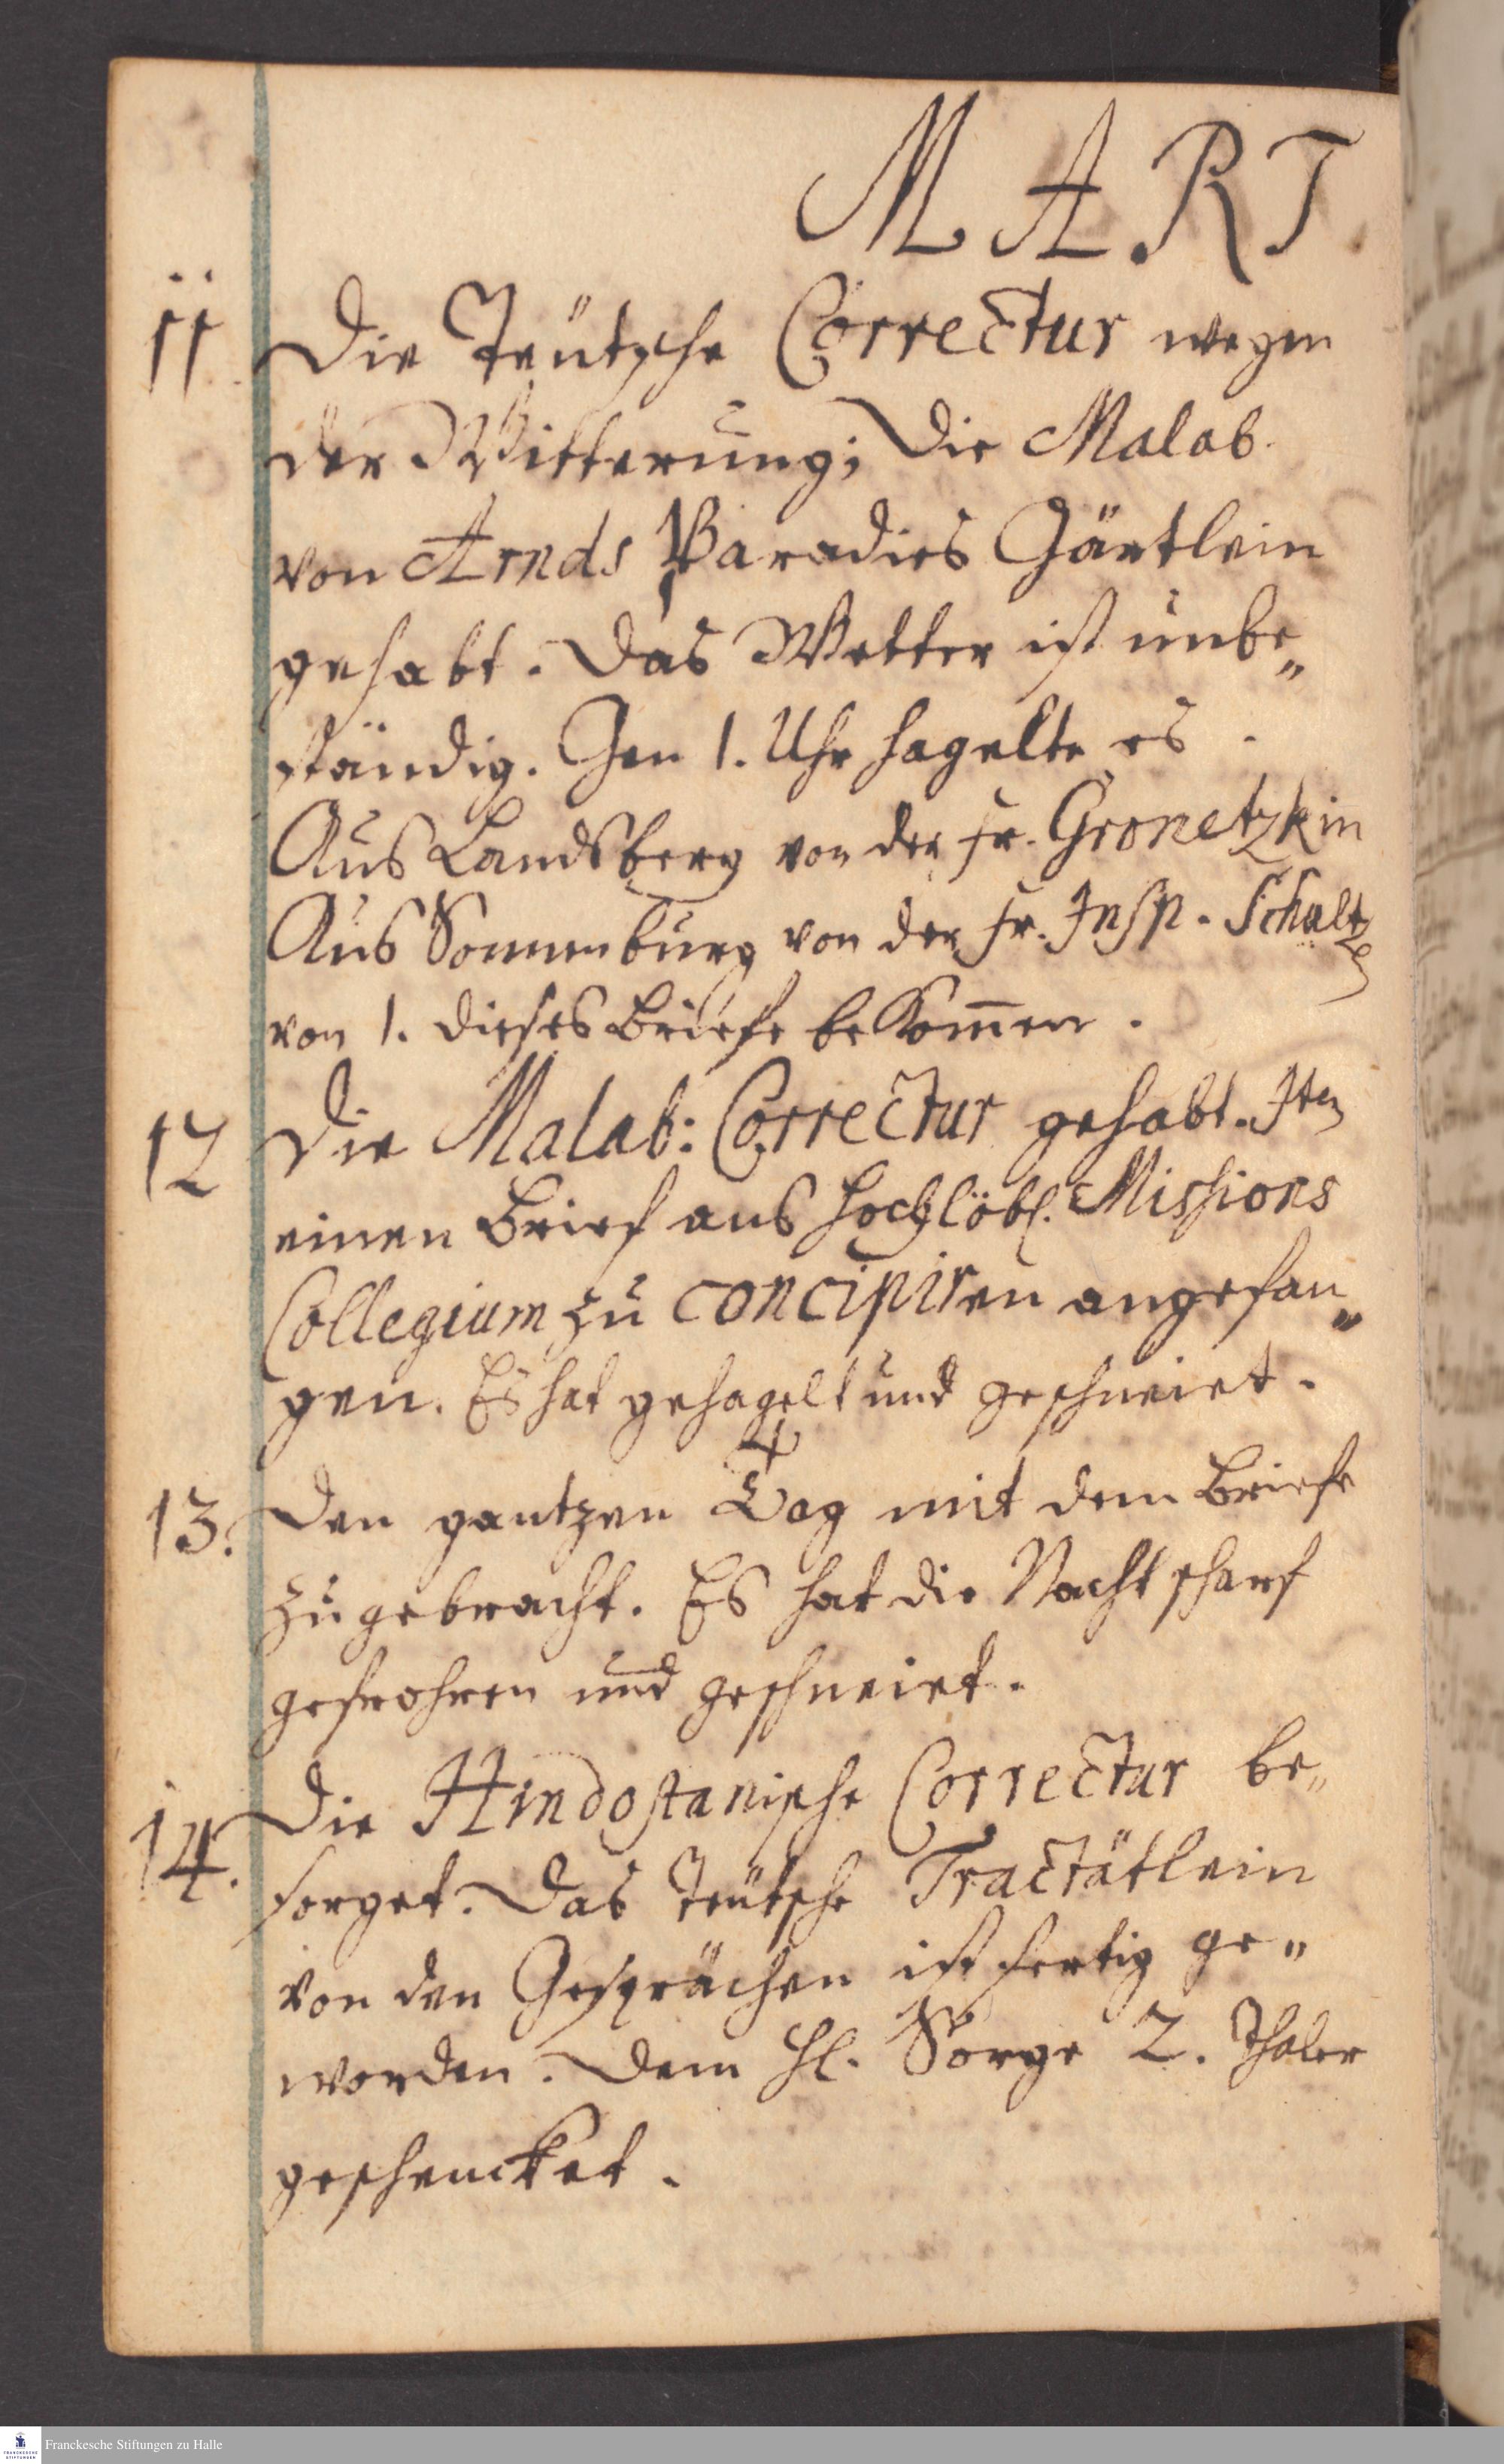 MART.
11 Die Teütsche Correctur wegen
der Witterung; Die Malab.
von Arnds Paradies Gärtlein
gehabt. Das Wetter ist unbe„
ständig. Gen 1. Uhr hagelte es.
Aus Landsberg von der Fr. Gronetzkin
Aus Sonnenburg von der Fr. Insp. Schultz
von 1. dieses Briefe bekom̅en.
12 Die Malab: Correctur gehabt. Item
einen Brief ans Hochlöbl. Missions
Collegium zu concipiren angefan„
gen. Es hat gehagelt und geschneiet.
13. Den gantzen Tag mit dem Briefe
zugebracht. Es hat die Nacht scharf
gefrohren und geschneiet.
14. Die Hindostanische Correctur be„
sorget. Das teütsche Tractätlein
von den Gesprächen ist fertig ge„
worden. Dem Hl. Sorge 2. Thaler
geschencket.
Franckesche Stiftungen zu Halle